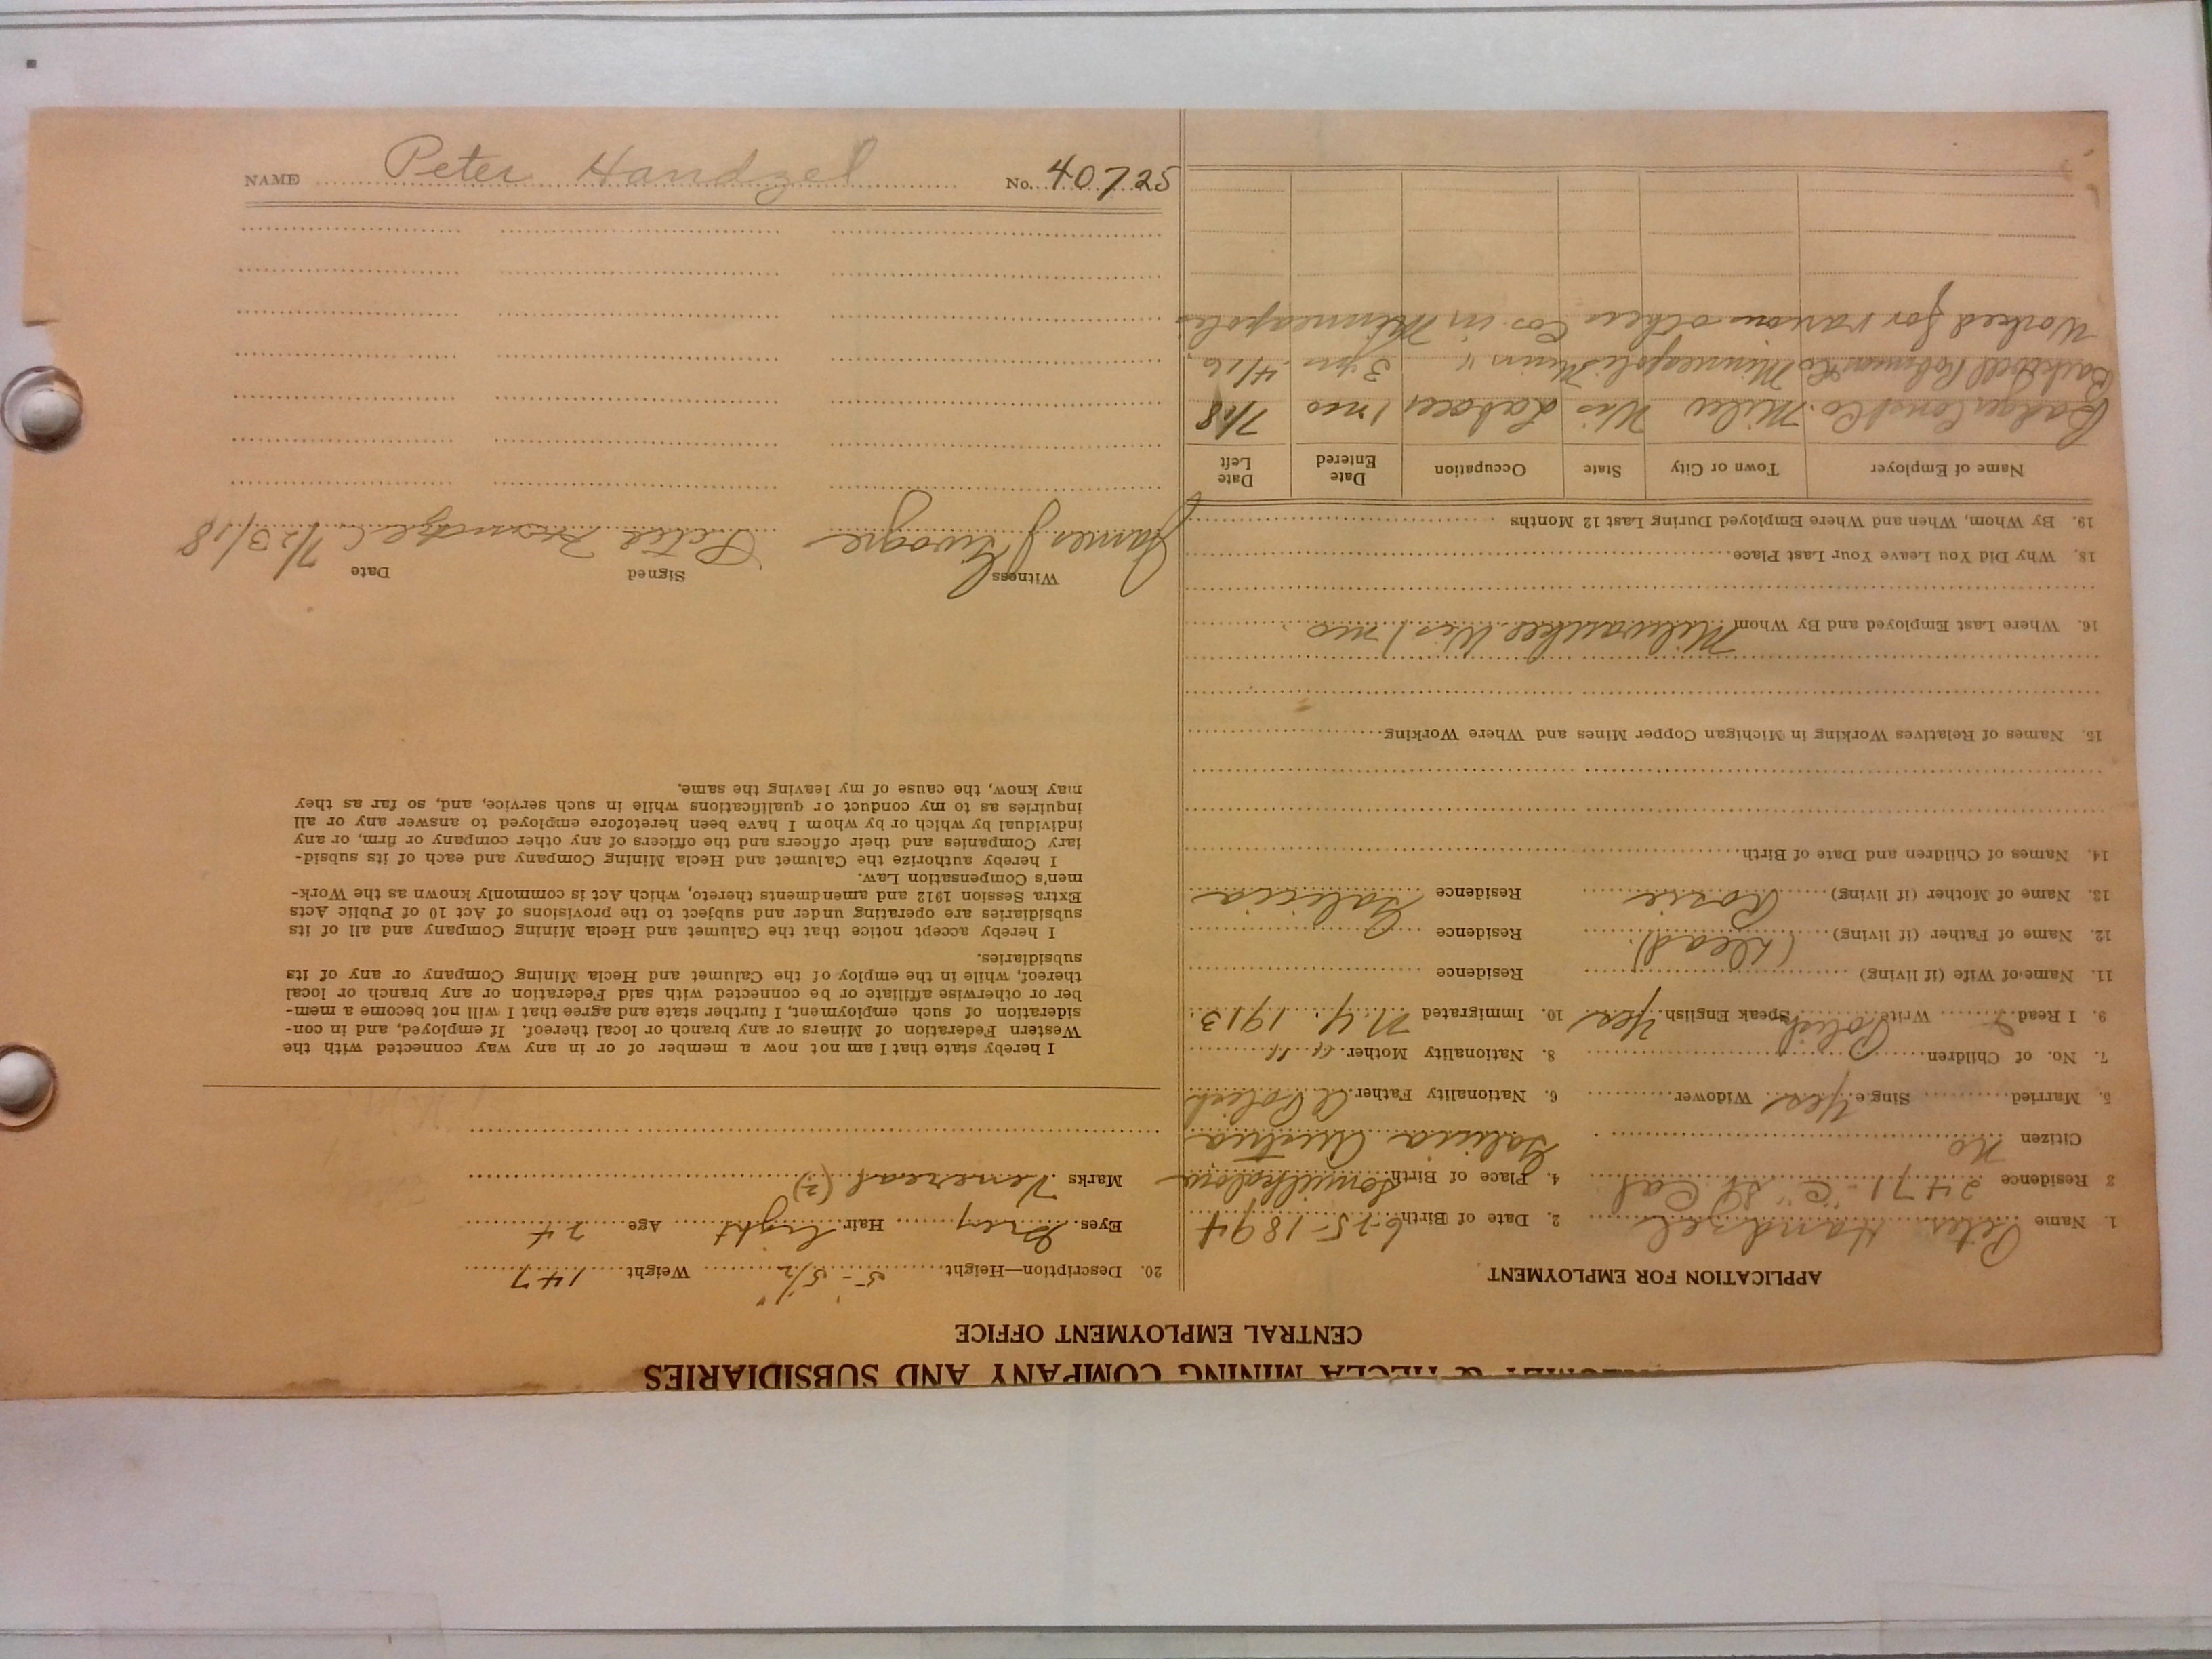 CALUMET & HECLA MINING COMPANY AND SUBSIDIARIES
CENTRAL EMPLOYMENT OFFICE
APPLICATION FOR EMPLOYMENT
1. Name Peter Handzel 2. Date of Birth 6-25-1894
3 Residence 2471 - "C" St Cal 4. Place of Birth
Citizen No Galicia Austria
5. Married Single Yes Widower 6. Nationality Father A Polish
7. No. of Children 8. Nationality Mother " "
9. I Read Write Polish Speak English Yes 10. Immigrated N.Y. 1913
11. Name of Wife (if living) Residence
12. Name of Father (if living) (Dead) Residence
13. Name of Mother (if living) Rosie Residence Galicia
14. Names of Children and Date of Birth
15. Names of Relatives Working in Michigan Copper Mines and Where Working
16. Where Last Employed and By Whom Milwaukee Wis 1 mo
18. Why Did You Leave Your Last Place
19. By Whom, When and Where Employed During Last 12 Months
Name of Employer Town or City State Occupation Date Entered Date Left
Badger Const Co. Milw Wis Laborer 1 mo 7/18
Robinson Co Minneapolis Minn " 3 yrs 4/16
Worked for various other Cos. in Minneapolis
20. Description—Height 5'-5½" Weight 147
Eyes Grey Hair Light Age 24
Marks Venereal (2)
I hereby state that I am not now a member of or in any way connected with the
Western Federation of Miners or any branch or local thereof. If employed, and in con-
sideration of such employment, I further state and agree that I will not become a mem-
ber or otherwise affiliate or be connected with said Federation or any branch or local
thereof, while in the employ of the Calumet and Hecla Mining Company or any of its
subsidiaries.
I hereby accept notice that the Calumet and Hecla Mining Company and all of its
subsidiaries are operating under and subject to the provisions of Act 10 of Public Acts
Extra Session 1912 and amendments thereto, which Act is commonly known as the Work-
men's Compensation Law.
I hereby authorize the Calumet and Hecla Mining Company and each of its subsid-
iary Companies and their officers and the officers of any other company or firm, or any
individual by which or by whom I have been heretofore employed to answer any or all
inquiries as to my conduct or qualifications while in such service, and, so far as they
may know, the cause of my leaving the same.
Witness Signed Date
James J Peter Handzel 7/23/18
NAME Peter Handzel No. 40725